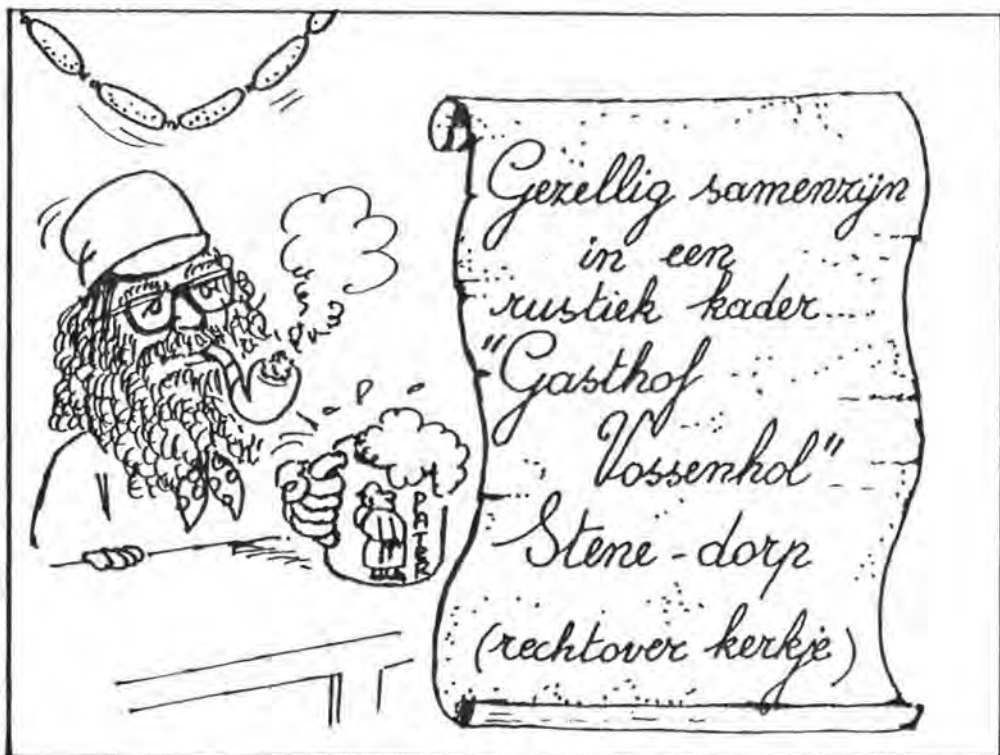 Gezellig samenzijn
in een
rustiek kader...
"Gasthof
Vossenhol"
Stene-dorp
(rechtover kerkje)
PATER